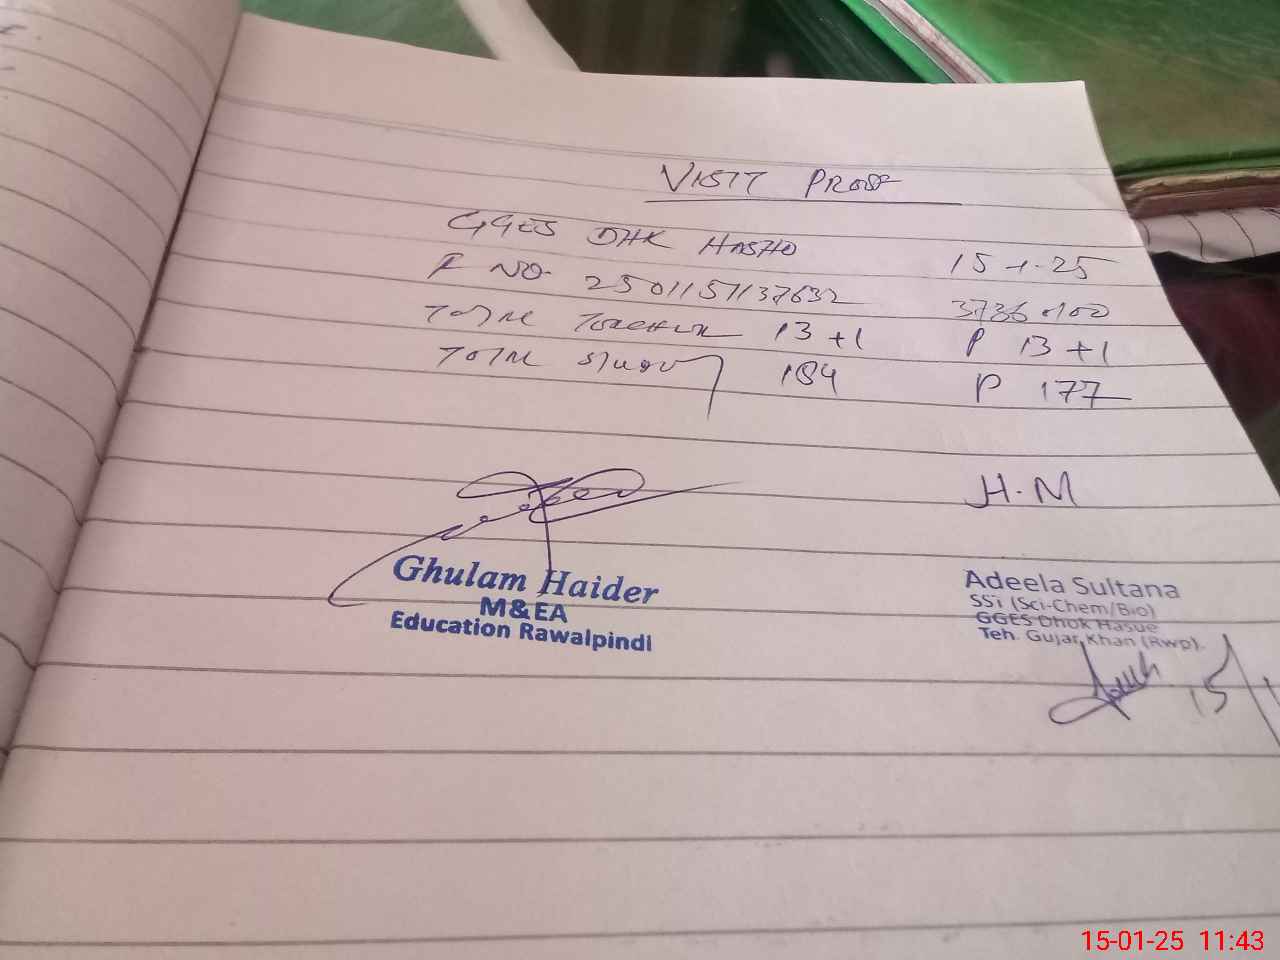 VISIT PROOF
GGES DHK HASHO 15-1-25
F NO. 2501151137632 37360100
TOTAL TEACHER 13+1 P 13+1
TOTAL 184 P 177
H.M
Ghulam Haider
M&EA
Education Rawalpindi
Adeela Sultana
SSi (Sci-Chem/Bio)
GGES Dhok Hasue
Teh. Gujar Khan (Rwp).
15/1
15-01-25 11:43